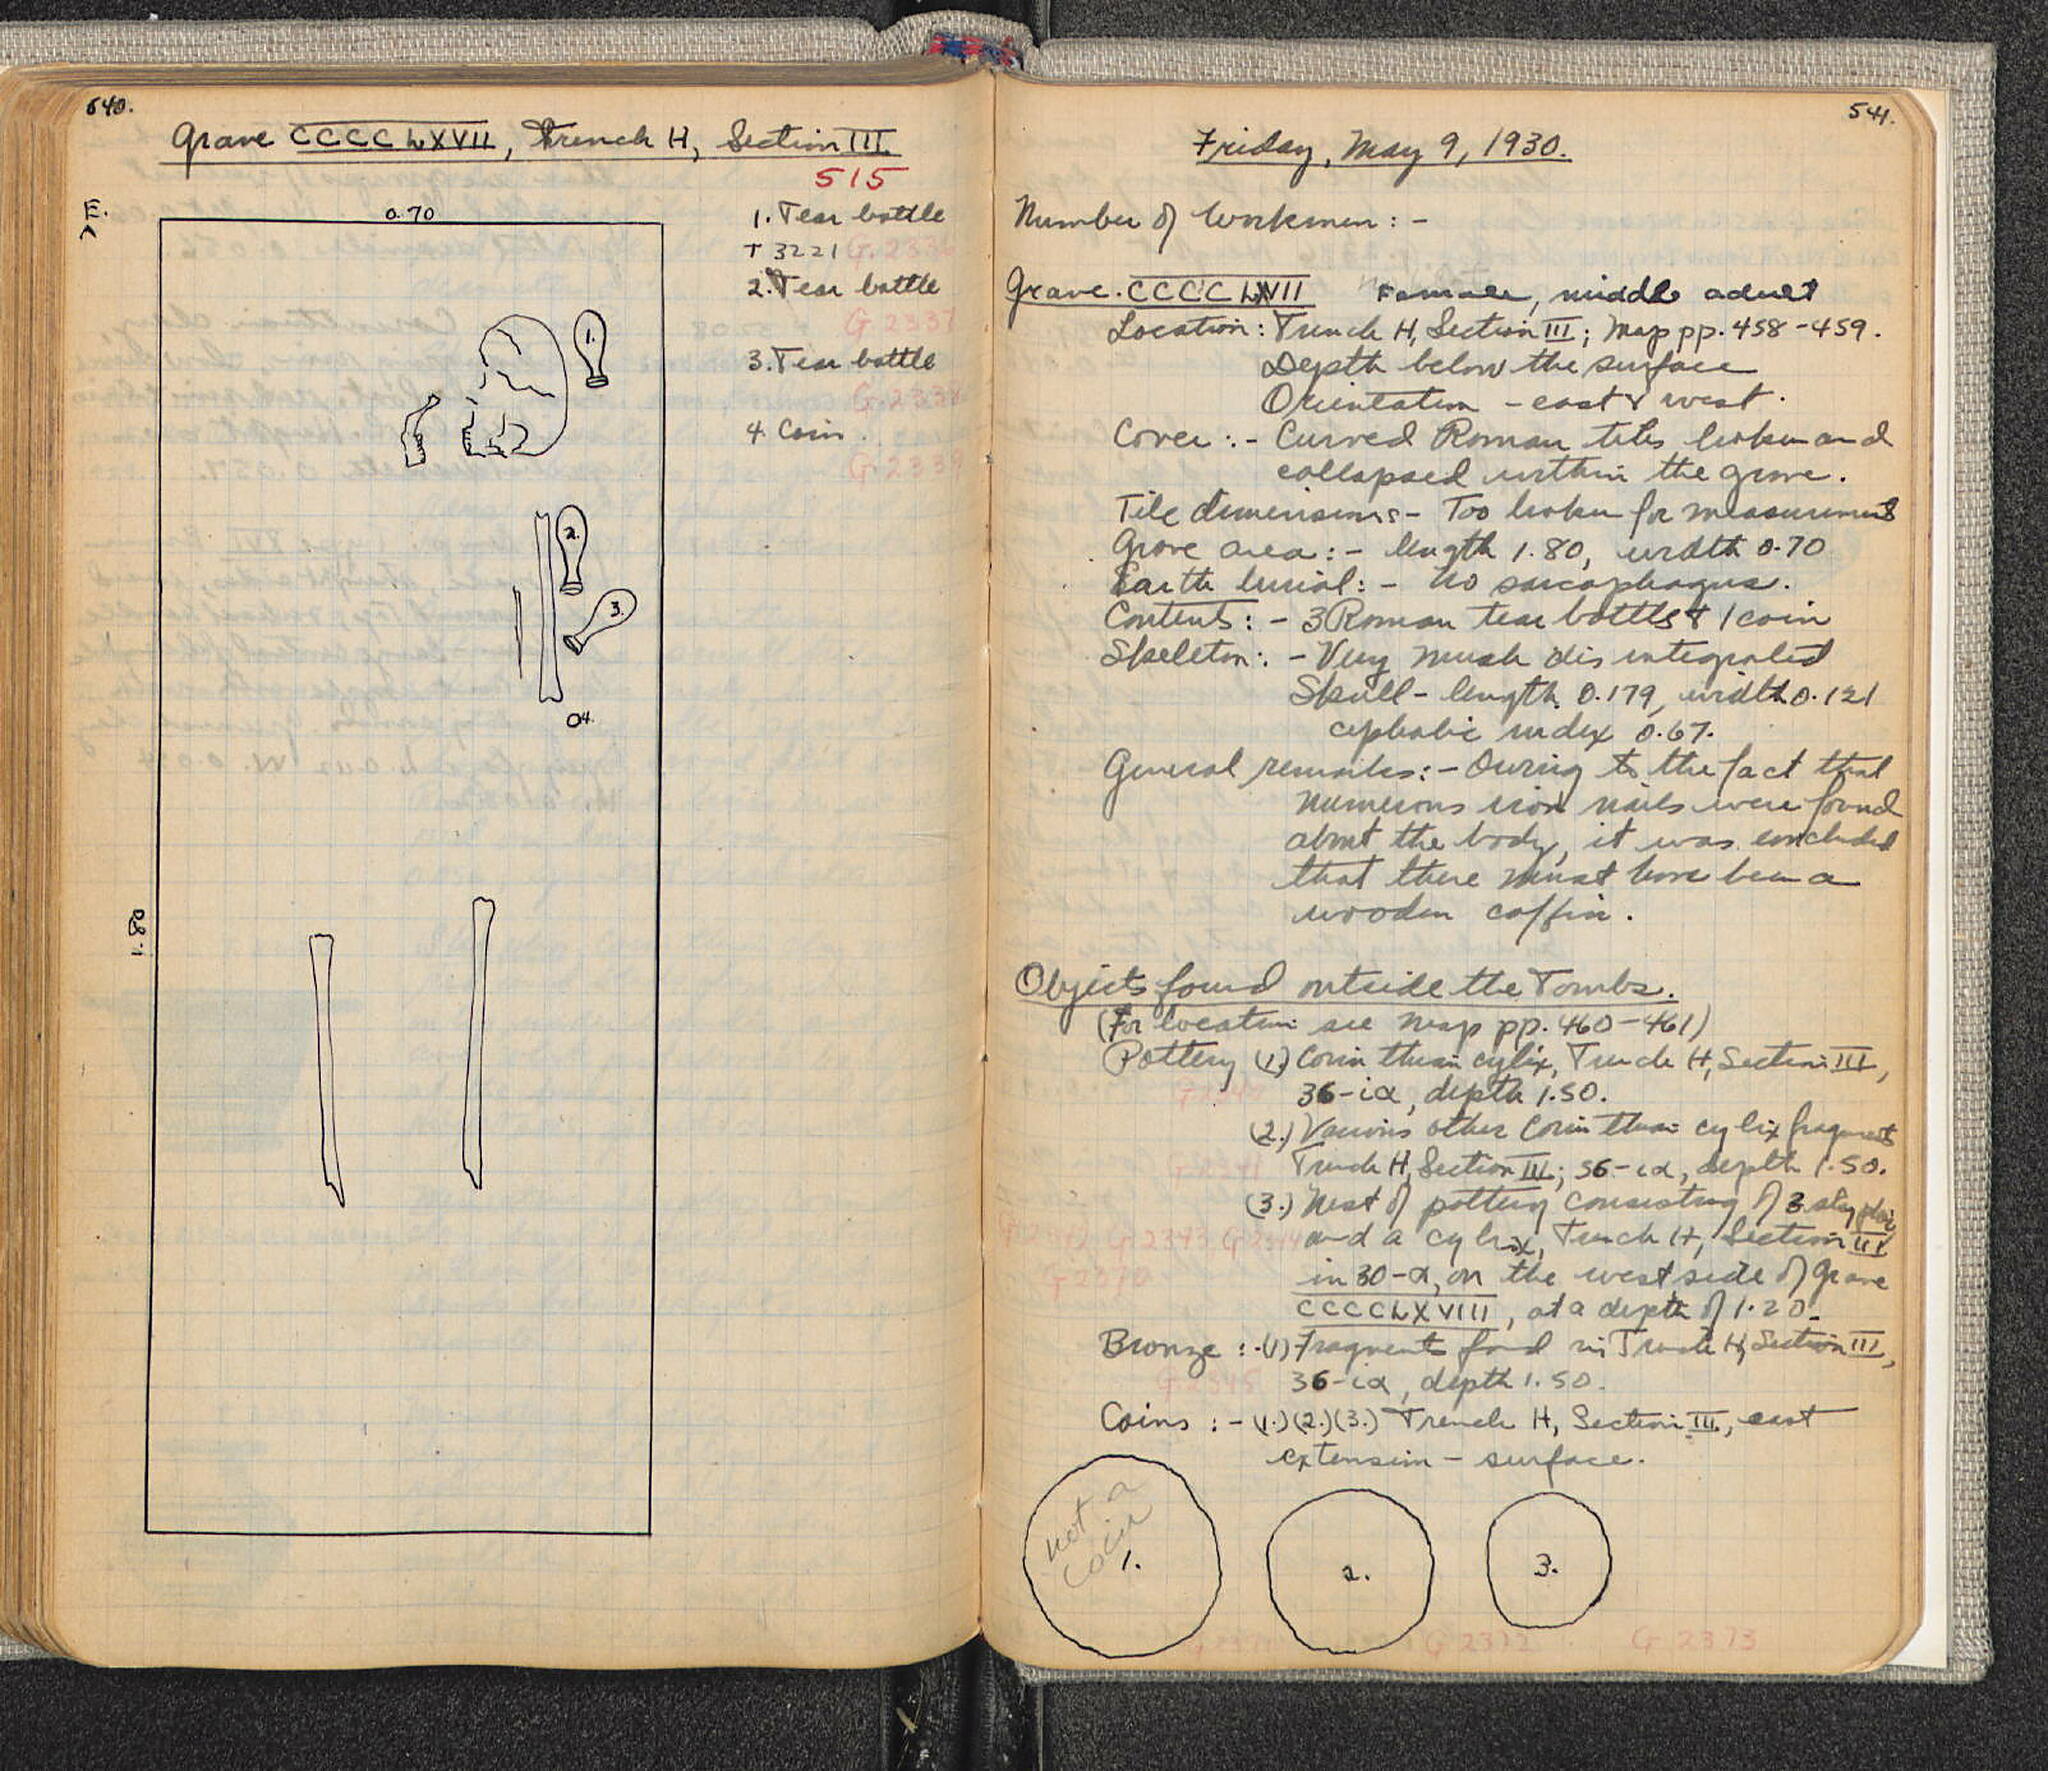 540.
Grave CCCCLXVII, Trench H, Section III
515
E.
0.70
1. Tear bottle
T 3221 G. 2336
2. Tear bottle
G 2337
3. Tear bottle
G. 2338
4. Coin.
G. 2339
1.
2.
3.
4.
1.80
541.
Friday, May 9, 1930.
Number of Workmen: -
Grave. CCCCLXVII Female, middle adult
Location: Trench H, Section III; Map pp. 458-459.
Depth below the surface
Orientation - east & west.
Cover: - Curved Roman tiles broken and
collapsed within the grave.
Tile dimensions - Too broken for measurements
Grave area: - length 1.80, width 0.70
Earth burial: - No sarcophagus.
Contents: - 3 Roman tear bottles & 1 coin
Skeleton: - Very much disintegrated
Skull - length 0.179, width 0.121
cephalic index 0.67.
General remarks: - Owing to the fact that
numerous iron nails were found
about the body, it was concluded
that there must have been a
wooden coffin.
Objects found outside the Tombs.
(For location see map pp. 460-461)
Pottery (1.) Corinthian cylix, Trench H, Section III,
36-iα, depth 1.50.
(2.) Various other Corinthian cylix fragments
G 2341 Trench H, Section III; 36-iα, depth 1.50.
(3.) Nest of pottery consisting of 3 skyphoi
G 2342 G 2343 G 2344 and a cylix, Trench H, Section III
G 2370 in 30-α, on the west side of Grave
CCCCLXVIII, at a depth of 1.20.
Bronze: - (1) Fragments found in Trench H, Section III,
G 2345 36-iα, depth 1.50.
Coins: - (1.) (2.) (3.) Trench H, Section III, east
extension - surface.
not a
coin
1.
2.
3.
G 2371 G 2372 G 2373